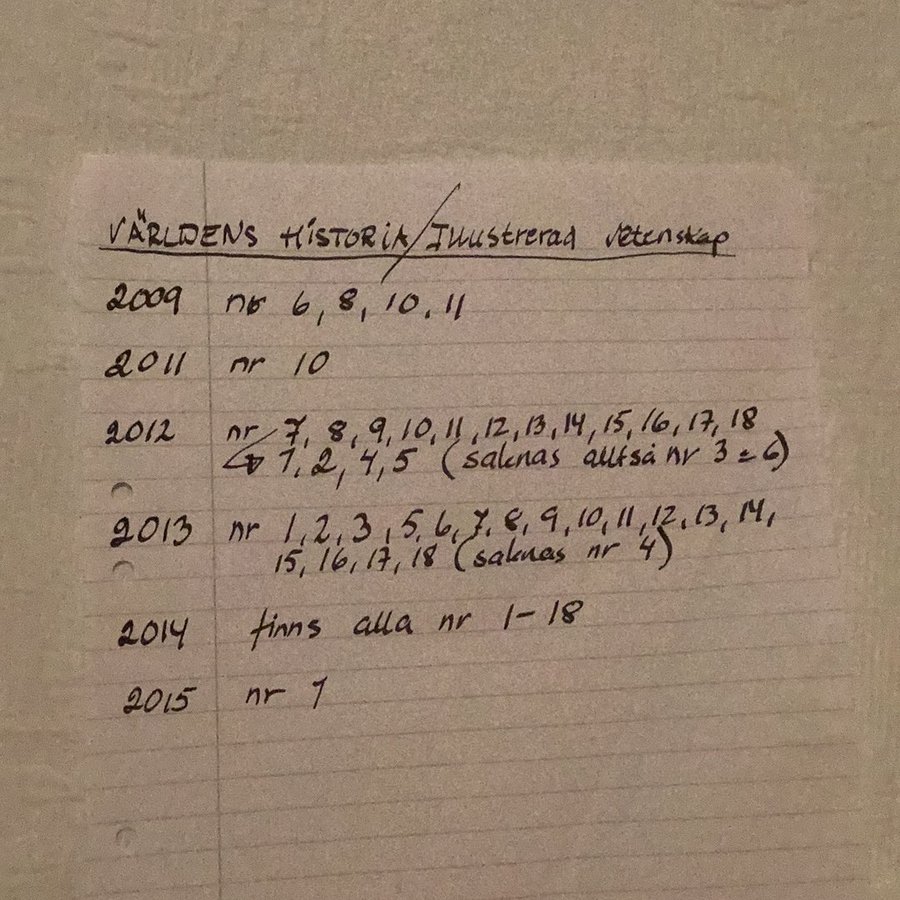 VÄRLDENS HISTORIA/Illustrerad Vetenskap
2009 nr 6, 8, 10, 11
2011 nr 10
2012 nr 7, 8, 9, 10, 11, 12, 13, 14, 15, 16, 17, 18
↳ 1, 2, 4, 5 (saknas alltså nr 3 & 6)
2013 nr 1, 2, 3, 5, 6, 7, 8, 9, 10, 11, 12, 13, 14,
15, 16, 17, 18 (saknas nr 4)
2014 finns alla nr 1-18
2015 nr 1